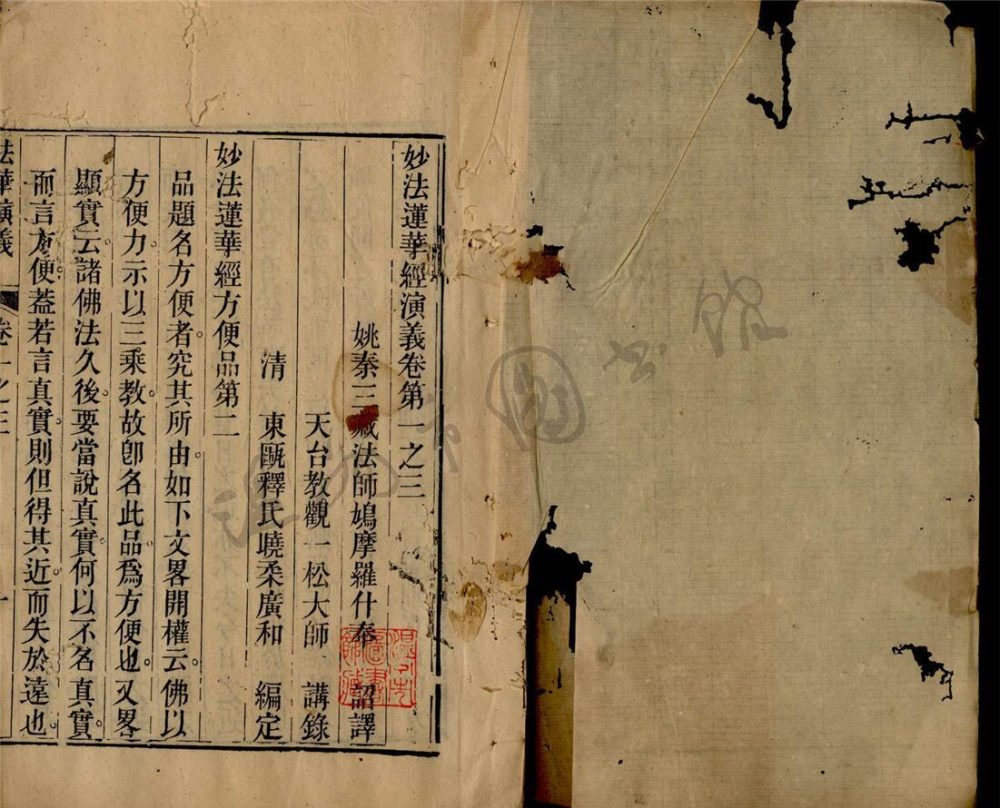 妙法蓮華經演義卷第一之三
姚秦三藏法師鳩摩羅什奉 詔譯
天台教觀一松大師 講錄
清 東甌釋氏曉柔廣和 編定
妙法蓮華經方便品第二
品題名方便者。究其所由。如下文畧開權云。佛以
方便力。示以三乘教。故卽名此品。爲方便也。又畧
顯實云。諸佛法久後。要當說真實。何以不名真實。
而言方便。蓋若言真實。則但得其近。而失於遠也。
法華演義 卷一之三 一
圖書館